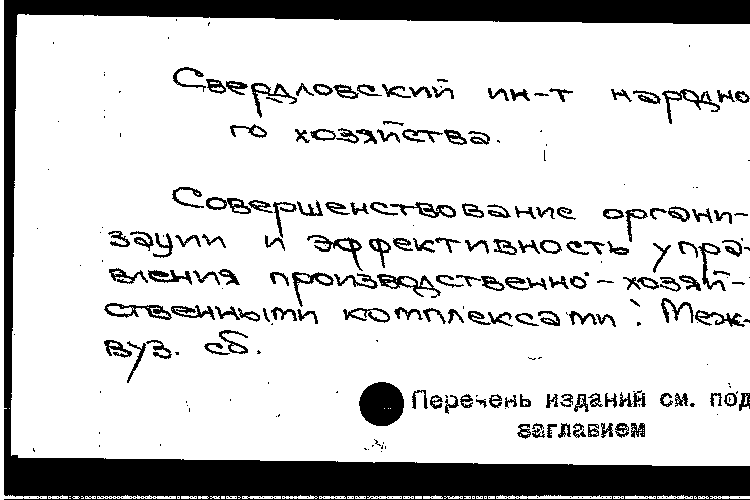 Свердловский ин-т народно
го хозяйства.
Совершенствование органи-
зации и эффективность упра-
вления производственно-хозяй-
ственными комплексами: Меж-
вуз. сб.
Перечень изданий см. под
заглавием